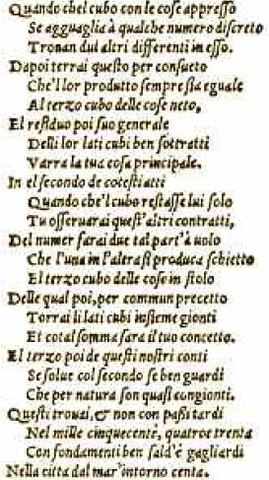 Quando chel cubo con le cose appresso
Se agguaglia à qualche numero discreto
Trouan dui altri differenti in esso.
Dapoi terrai questo per consueto
Che'l lor produtto sempre sia eguale
Al terzo cubo delle cose neto,
El residuo poi suo generale
Delli lor lati cubi ben sottratti
Varra la tua cosa principale.
In el secondo de cotesti atti
Quando che'l cubo restasse lui solo
Tu osseruarai quest'altri contratti,
Del numer farai due tal part'à uolo
Che l'una in l'altra si produca schietto
El terzo cubo delle cose in stolo
Delle qual poi, per commun precetto
Torrai li lati cubi insieme gionti
Et cotal somma sara il tuo concetto.
El terzo poi de questi nostri conti
Se solue col secondo se ben guardi
Che per natura son quasi congionti.
Questi trouai, & non con passi tardi
Nel mille cinquecentè, quatroe trenta
Con fondamenti ben sald'è gagliardi
Nella citta dal mar'intorno centa.